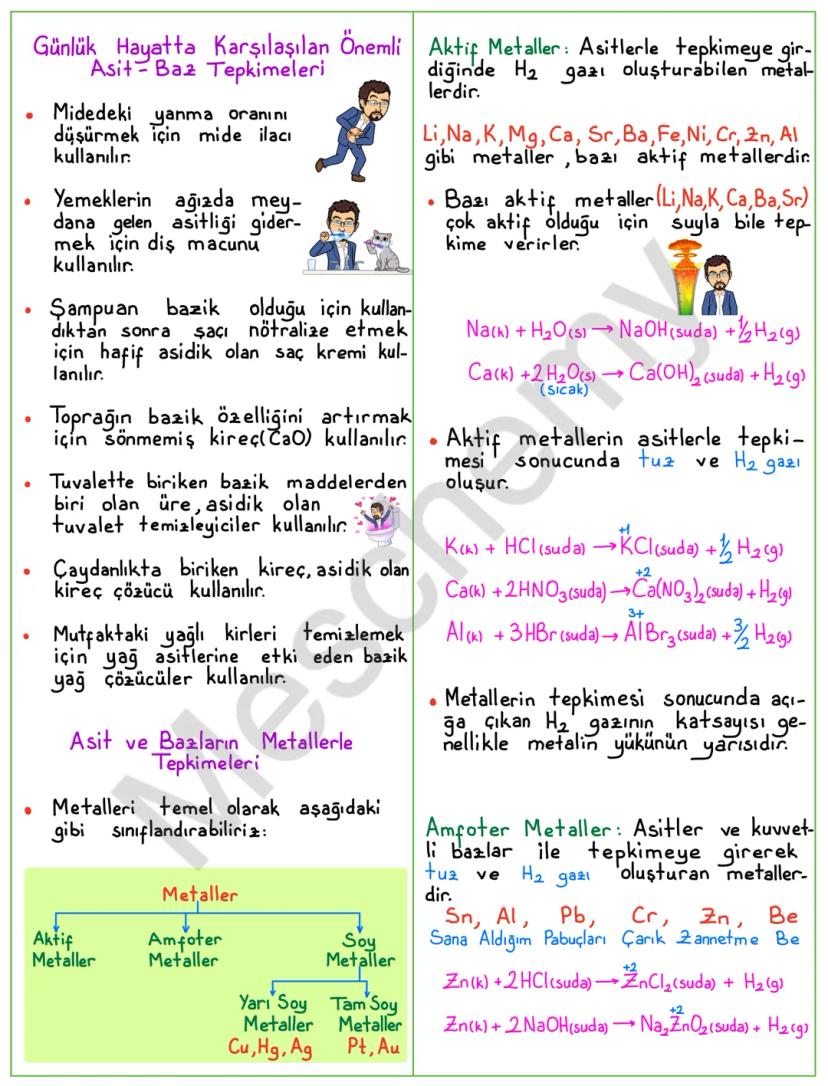 Günlük Hayatta Karşılaşılan Önemli
Asit-Baz Tepkimeleri
• Midedeki yanma oranını
düşürmek için mide ilacı
kullanılır.
• Yemeklerin ağızda mey-
dana gelen asitliği gider-
mek için diş macunu
kullanılır.
• Şampuan bazik olduğu için kullan-
dıktan sonra saçı nötralize etmek
için hafif asidik olan saç kremi kul-
lanılır.
• Toprağın bazik özelliğini artırmak
için sönmemiş kireç(CaO) kullanılır.
• Tuvalette biriken bazik maddelerden
biri olan üre, asidik olan
tuvalet temizleyiciler kullanılır.
• Çaydanlıkta biriken kireç, asidik olan
kireç çözücü kullanılır.
• Mutfaktaki yağlı kirleri temizlemek
için yağ asitlerine etki eden bazik
yağ çözücüler kullanılır.
Asit ve Bazların Metallerle
Tepkimeleri
• Metalleri temel olarak aşağıdaki
gibi sınıflandırabiliriz:
Metaller
Aktif Metaller
Amfoter Metaller
Soy Metaller
Yarı Soy Metaller
Cu, Hg, Ag
Tam Soy Metaller
Pt, Au
Aktif Metaller: Asitlerle tepkimeye gir-
diğinde H₂ gazı oluşturabilen metal-
lerdir.
Li, Na, K, Mg, Ca, Sr, Ba, Fe, Ni, Cr, Zn, Al
gibi metaller, bazı aktif metallerdir.
• Bazı aktif metaller (Li, Na, K, Ca, Ba, Sr)
çok aktif olduğu için suyla bile tep-
kime verirler.
Na(k) + H₂O(s) → NaOH(suda) + 1/2 H₂(g)
Ca(k) + 2H₂O(s) → Ca(OH)₂(suda) + H₂(g)
(sıcak)
• Aktif metallerin asitlerle tepki-
mesi sonucunda tuz ve H₂ gazı
oluşur.
+1
K(k) + HCl(suda) → KCl(suda) + 1/2 H₂(g)
+2
Ca(k) + 2HNO₃(suda) → Ca(NO₃)₂(suda) + H₂(g)
3+
Al(k) + 3HBr(suda) → AlBr₃(suda) + 3/2 H₂(g)
• Metallerin tepkimesi sonucunda açı-
ğa çıkan H₂ gazının katsayısı ge-
nellikle metalin yükünün yarısıdır.
Amfoter Metaller: Asitler ve kuvvet-
li bazlar ile tepkimeye girerek
tuz ve H₂ gazı oluşturan metaller-
dir.
Sn, Al, Pb, Cr, Zn, Be
Sana Aldığım Pabuçları Çarık Zannetme Be
+2
Zn(k) + 2HCl(suda) → ZnCl₂(suda) + H₂(g)
+2
Zn(k) + 2NaOH(suda) → Na₂ZnO₂(suda) + H₂(g)
Meschemy